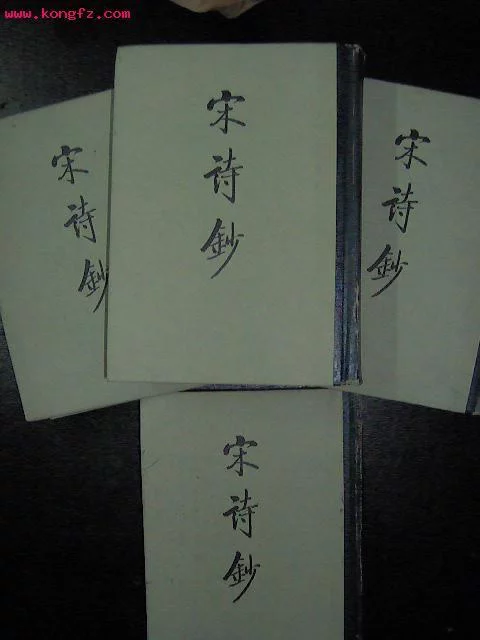 www.kongfz.com
宋诗鈔
宋诗鈔
宋诗鈔
宋诗鈔